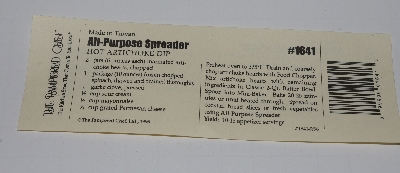 The Pampered Chef
Made in Taiwan
All-Purpose Spreader
HOT ARTICHOKE DIP
jars (6 ounces each) marinated arti-
choke hearts, chopped
package (10 ounces) frozen chopped
spinach, thawed and drained thoroughly
garlic clove, pressed
cup sour cream
cup mayonnaise
cup grated Parmesan cheese
© The Pampered Chef, Ltd., 1996
#1641
Preheat oven to 375°F. Drain and coarsely
chop artichoke hearts with Food Chopper.
Mix artichoke hearts with remaining
ingredients in Classic 2-Qt. Batter Bowl.
Spoon into Mini-Baker. Bake 20 min-
utes or until heated through. Spread on
bread slices or fresh vegetables
using All-Purpose Spreader.
Yields appetizer servings